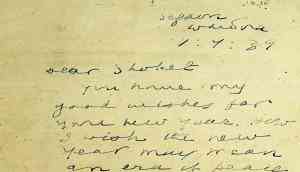 Segaon
Wardha
1.9.39
Dear Shohet
You have my
good wishes for
your new year. How
I wish the new
year may mean
an era of peace